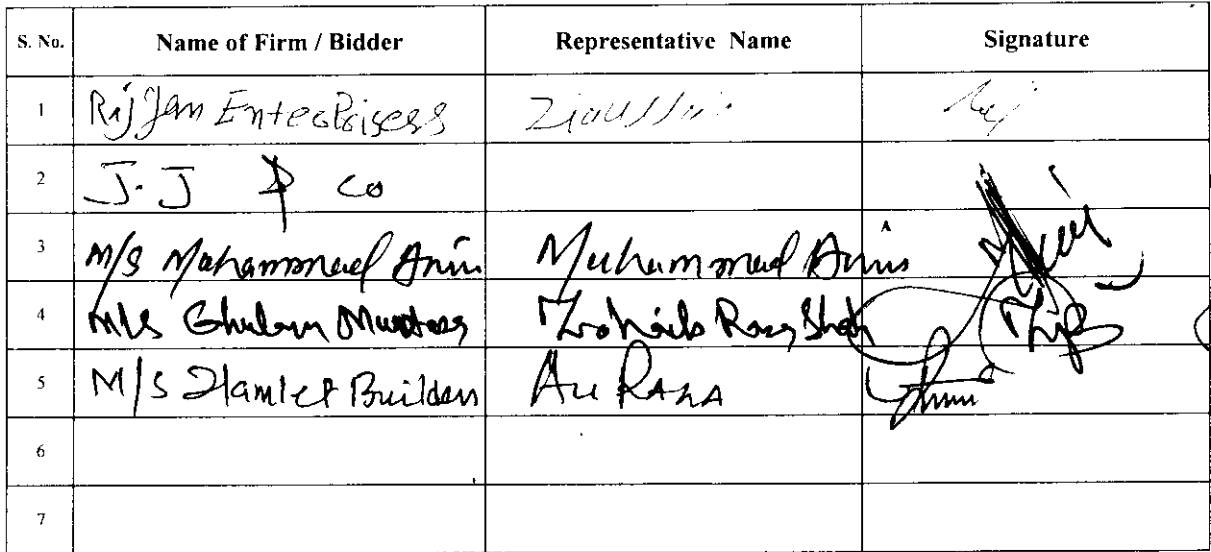 S. No. Name of Firm / Bidder Representative Name Signature
1 Rijjan Enterprisers
2 J.J & co
3 M/S Muhammad Anis Muhammad Anis
4 M/S Ghulam Murtaza Zohaib Raza Shah
5 M/S Hamlet Builders Ali RAZA
6
7